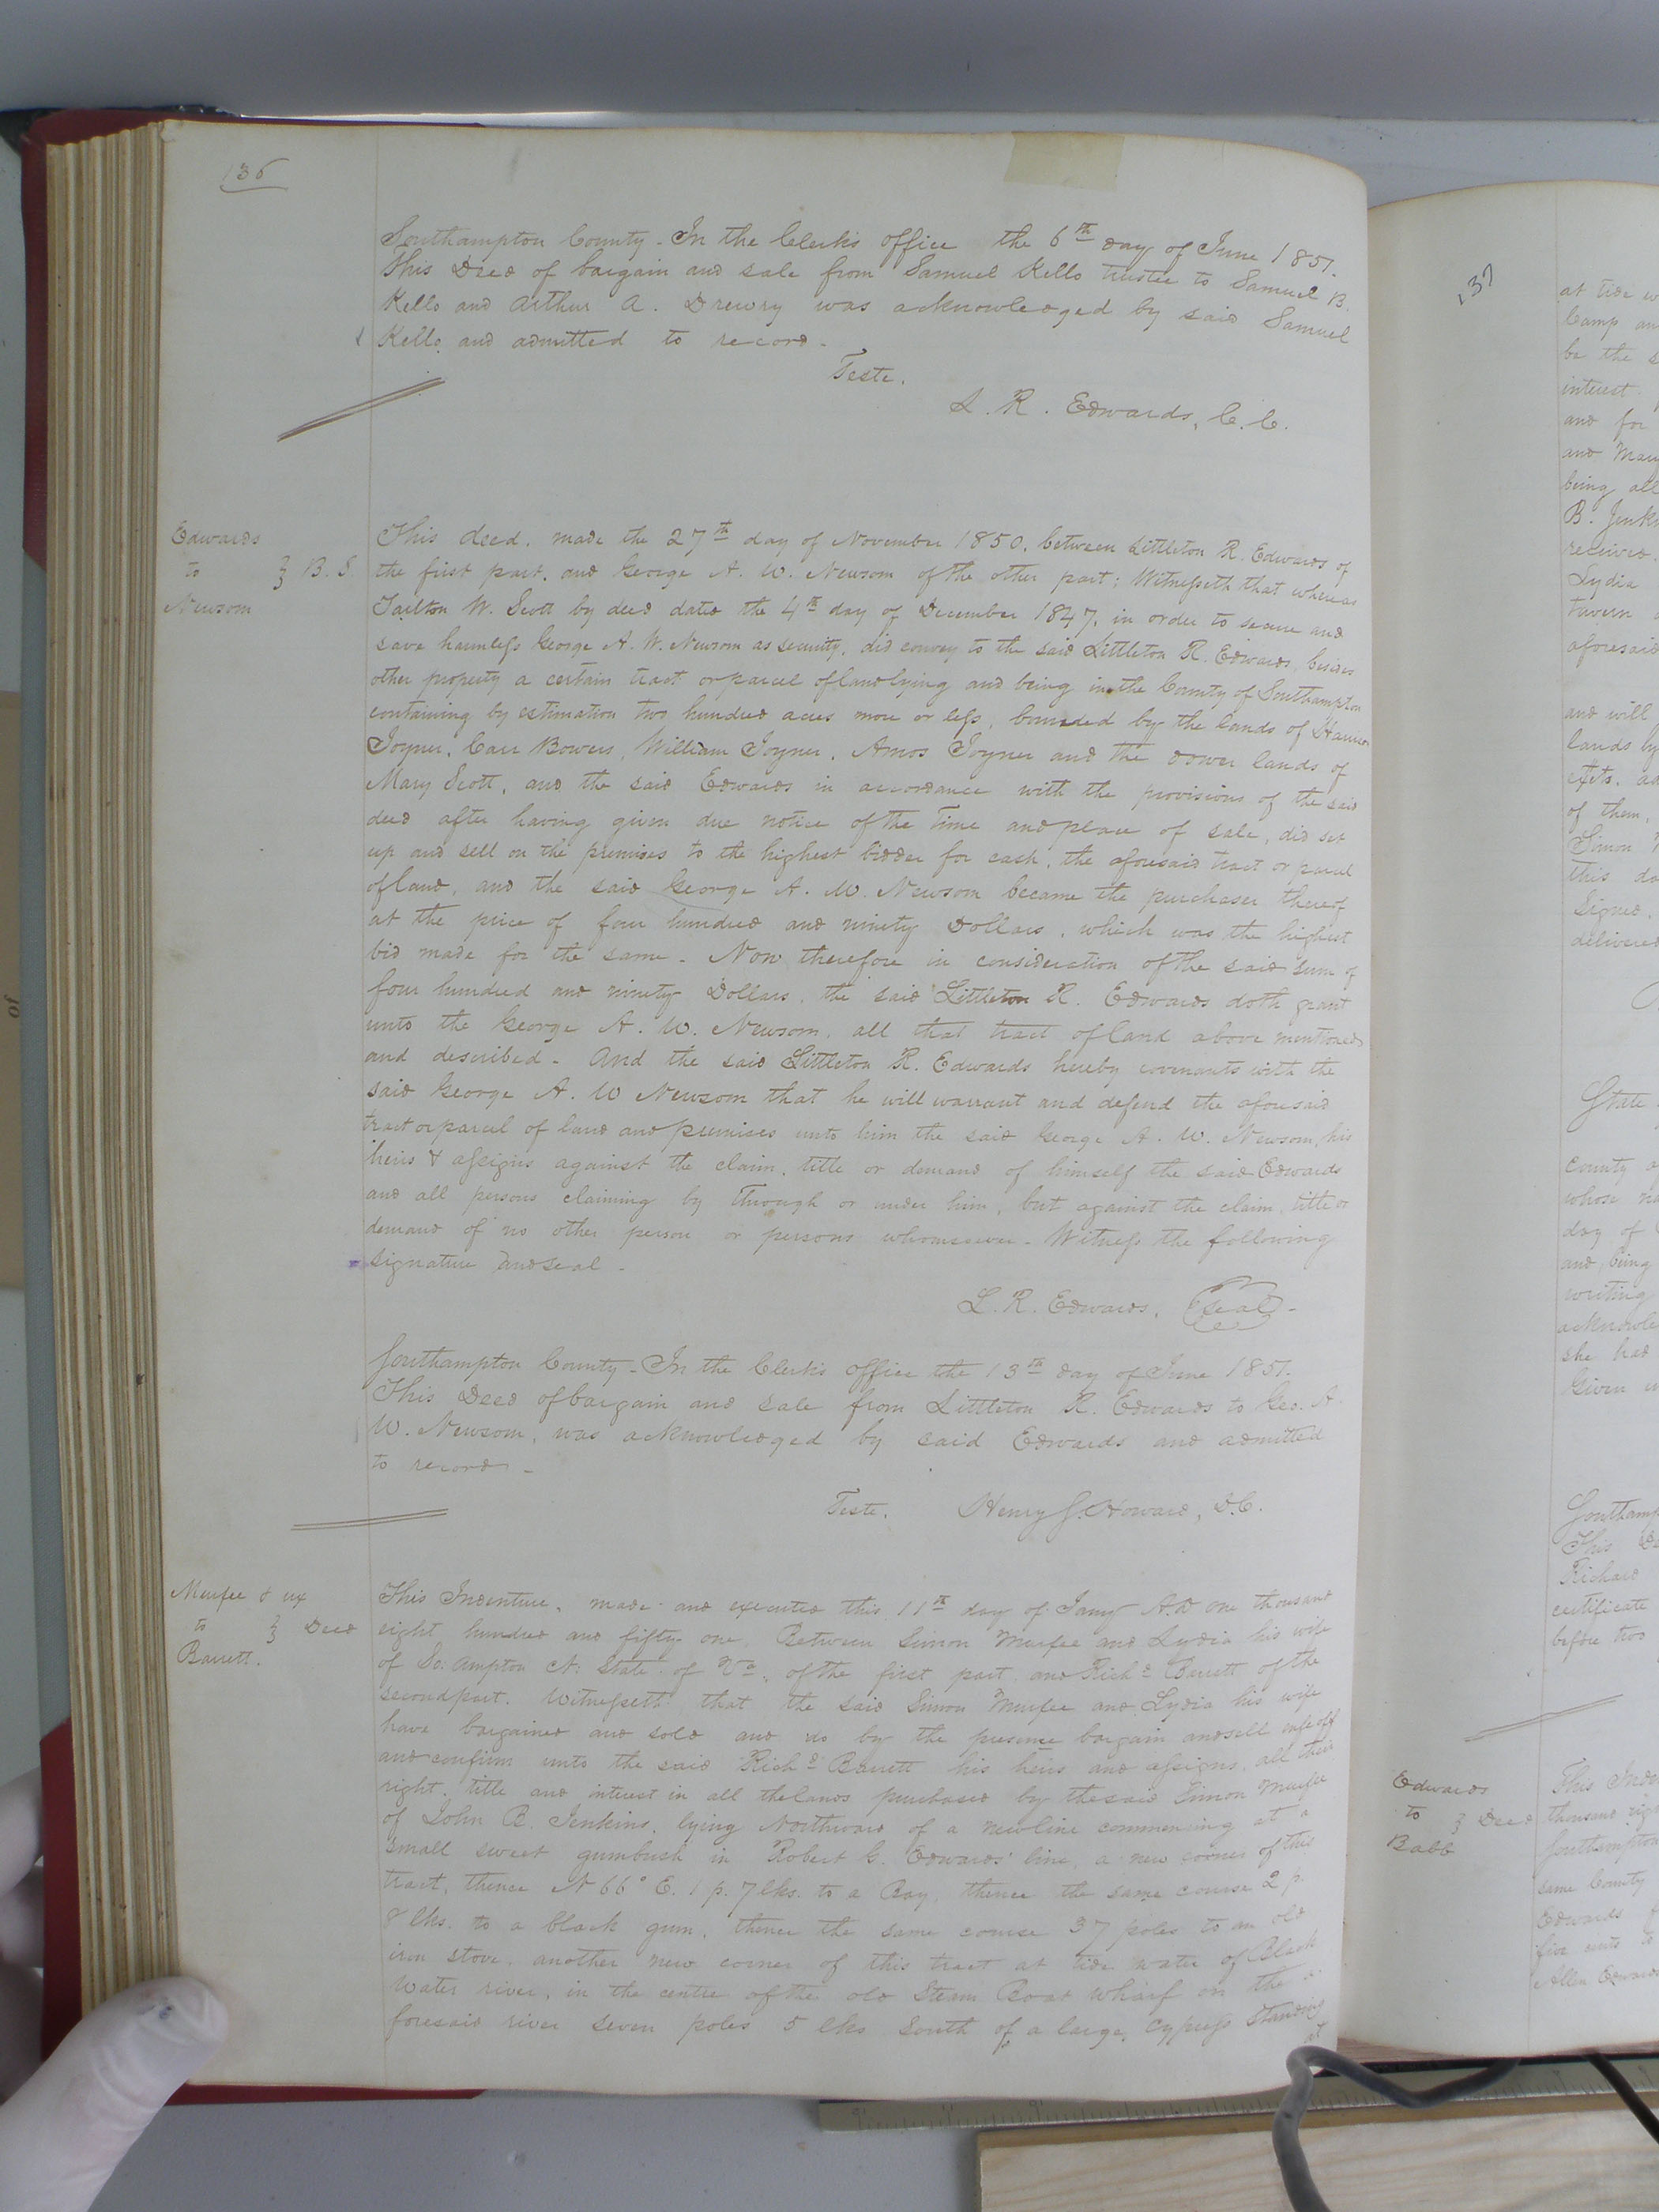 136
Southampton County - In the Clerk's office the 6th day of June 1851.
This Deed of bargain and sale from Samuel Kello trustee to Samuel B.
Kello and Arthur A. Drewry was acknowledged by said Samuel
Kello and admitted to record -
Teste.
L. R. Edwards, C. C.
Edwards
to } B. S.
Newsom
This deed, made the 27th day of November 1850, between Littleton R. Edwards of
the first part, and George A. W. Newsom of the other part; Witnesseth that whereas
Tarlton W. Scott by deed dated the 4th day of December 1847, in order to secure and
save harmless George A. W. Newsom as security, did convey to the said Littleton R. Edwards, besides
other property a certain tract or parcel of land lying and being in the County of Southampton
containing by estimation two hundred acres more or less, bounded by the lands of
Joyner, Carr Bowers, William Joyner, Amos Joyner and the dower lands of
Mary Scott, and the said Edwards in accordance with the provisions of the said
deed after having given due notice of the time and place of sale, did set
up and sell on the premises to the highest bidder for cash, the aforesaid tract or parcel
of land, and the said George A. W. Newsom became the purchaser thereof
at the price of four hundred and ninety Dollars, which was the highest
bid made for the same - Now therefore in consideration of the said sum of
four hundred and ninety Dollars, the said Littleton R. Edwards doth grant
unto the George A. W. Newsom, all that tract of land above mentioned
and described - And the said Littleton R. Edwards hereby covenants with the
said George A. W Newsom that he will warrant and defend the aforesaid
tract or parcel of land and premises unto him the said George A. W. Newsom, his
heirs & assigns against the claim, title or demand of himself the said Edwards
and all persons claiming by through or under him, but against the claim, title or
demand of no other person or persons whomsoever - Witness the following
signature and seal -
L. R. Edwards, (seal) -
Southampton County - In the Clerk's office the 13th day of June 1851.
This Deed of bargain and sale from Littleton R. Edwards to Geo. A.
W. Newsom, was acknowledged by said Edwards and admitted
to record -
Teste, Henry J. Howard, D.C.
Murfee & ux
to } Deed
Barrett.
This Indenture, made and executed this 11th day of Jany A.D one thousand
eight hundred and fifty one, Between Simon Murfee and Lydia his wife
of So: ampton Ct: State of Va, of the first part and Richd Barrett of the
second part. Witnesseth that the said Simon Murfee and Lydia his wife
have bargained and sold and do by the presence bargain and sell
and confirm unto the said Richd Barrett his heirs and assigns, all their
right, title and interest in all the lands purchased by the said Simon Murfee
of John B. Jenkins, lying Northward of a new line commencing at a
small sweet gumbush in Robert G. Edwards' line, a new corner of this
tract, thence N 66° E. 1 p. 7 lks. to a Bay, thence the same course 2 p.
8 lks. to a black gum, thence the same course 37 poles to an old
iron stove, another new corner of this tract at tide water of Black
Water river, in the centre of the old Steam Boat Wharf on the
foresaid river seven poles 5 lks South of a large, Cypress standing
at
137
at tide
Camp
be the
interest
and for
and
being all
B.
received
Lydia
tavern
aforesaid
and will
lands by
of them,
Simon
this
Signed,
delivered
State
County
whose
day of
and being
writing
she had
Given
This
Richard
certificate
before two
Edwards
to } Deed
Babb
This
thousand
Southampton
same County
Edwards
five cents to
Allen Edwards
of